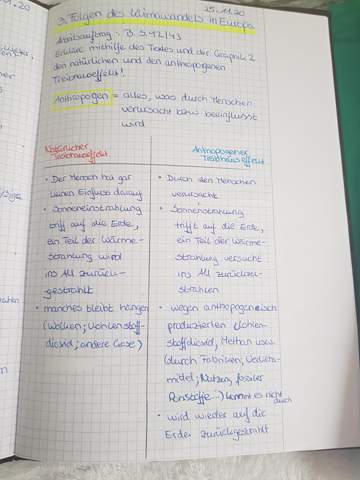 25.11.20
3. Folgen des Klimawandels in Europa
Arbeitsauftrag: B. S. 42/43
Erkläre mithilfe des Textes und der Graphik 2
den natürlichen und den anthropogenen
Treibhauseffekt!
Anthropogen = alles, was durch Menschen
verursacht bzw beeinflusst
wird
Natürlicher
Treibhauseffekt
• Der Mensch hat gar
keinen Einfluss darauf
• Sonneneinstrahlung
triff auf die Erde,
ein Teil der Wärme-
strahlung wird
ins All zurück-
gestrahlt
• manches bleibt hängen
(Wolken; Kohlenstoff-
dioxid; andere Gase)
Anthropogener
Treibhauseffekt
• Durch den Menschen
verursacht
• Sonneneinstrahlung
trifft auf die Erde,
ein Teil der Wärme-
strahlung versucht
ins All zurück-
strahlen
• wegen anthropogenisch
produzierten Kohlen-
stoffdioxid, Methan usw.
(durch Fabriken, Verkehrs-
mittel; Nutzung fossiler
) kommt es nicht
durch
• wird wieder auf die
Erde zurückgestrahlt